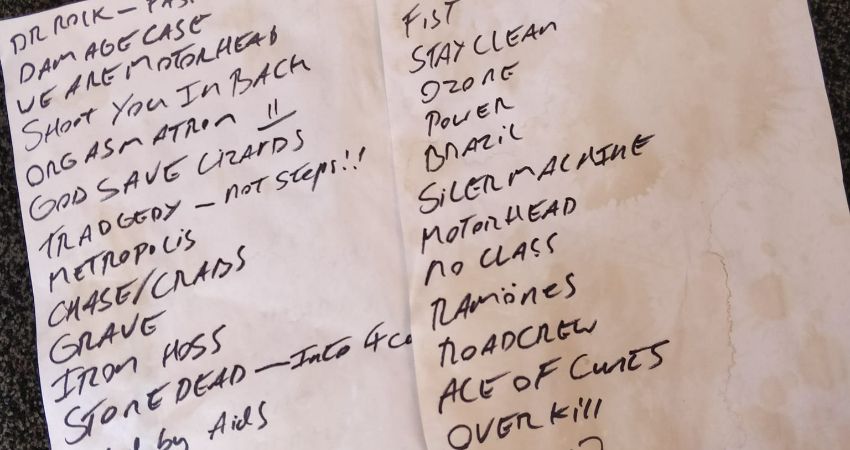 DR ROCK – FAS
DAMAGE CASE
WE ARE MOTORHEAD
SHOOT YOU IN BACK
ORGASMATRON !!
GOD SAVE LIZARDS
TRADGEDY – NOT STEPS!!
METROPOLIS
CHASE/CRABS
GRAVE
IRON HOSS
STONE DEAD — INTO
by Aids
FIST
STAY CLEAN
OZONE
POWER
BRAZIL
SILERMACHINE
MOTORHEAD
NO CLASS
RAMÖNES
ROADCREW
ACE OF CUNTS
OVERKILL